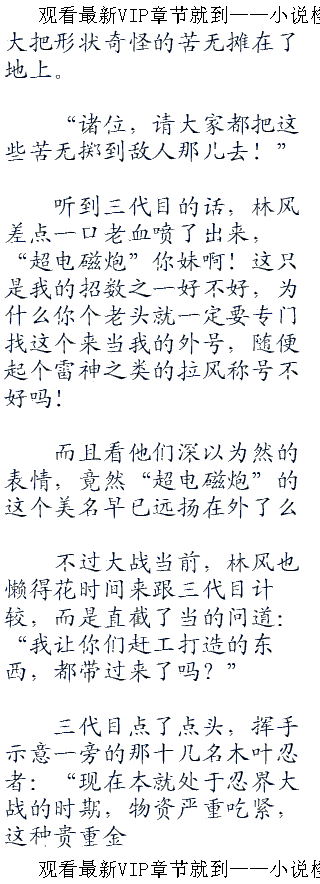 观看最新VIP章节就到——小说
大把形状奇怪的苦无摊在了
地上。
“诸位，请大家都把这
些苦无掷到敌人那儿去！”
听到三代目的话，林风
差点一口老血喷了出来，
“超电磁炮”你妹啊！这只
是我的招数之一好不好，为
什么你个老头就一定要专门
找这个来当我的外号，随便
起个雷神之类的拉风称号不
好吗！
而且看他们深以为然的
表情，竟然“超电磁炮”的
这个美名早已远扬在外了么
不过大战当前，林风也
懒得花时间来跟三代目计
较，而是直截了当的问道：
“我让你们赶工打造的东
西，都带过来了吗？”
三代目点了点头，挥手
示意一旁的那十几名木叶忍
者：“现在本就处于忍界大
战的时期，物资严重吃紧，
这种贵重金
观看最新VIP章节就到——小说